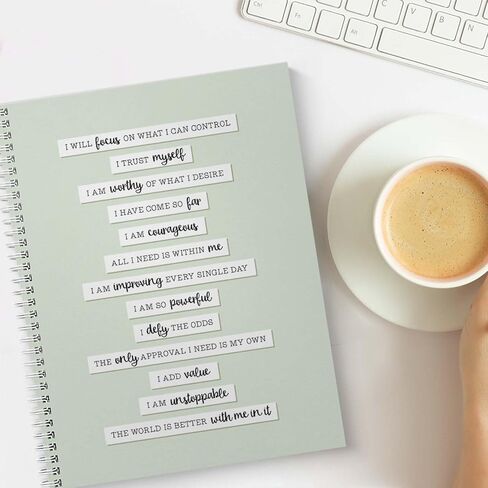 Ctrl
Fn
Alt
C
V
B
N
I WILL focus ON WHAT I CAN CONTROL
I TRUST myself
I AM worthy OF WHAT I DESIRE
I HAVE COME SO far
I AM courageous
ALL I NEED IS WITHIN me
I AM improving EVERY SINGLE DAY
I AM SO powerful
I defy THE ODDS
THE only APPROVAL I NEED IS MY OWN
I ADD value
I AM unstoppable
THE WORLD IS BETTER with me in it